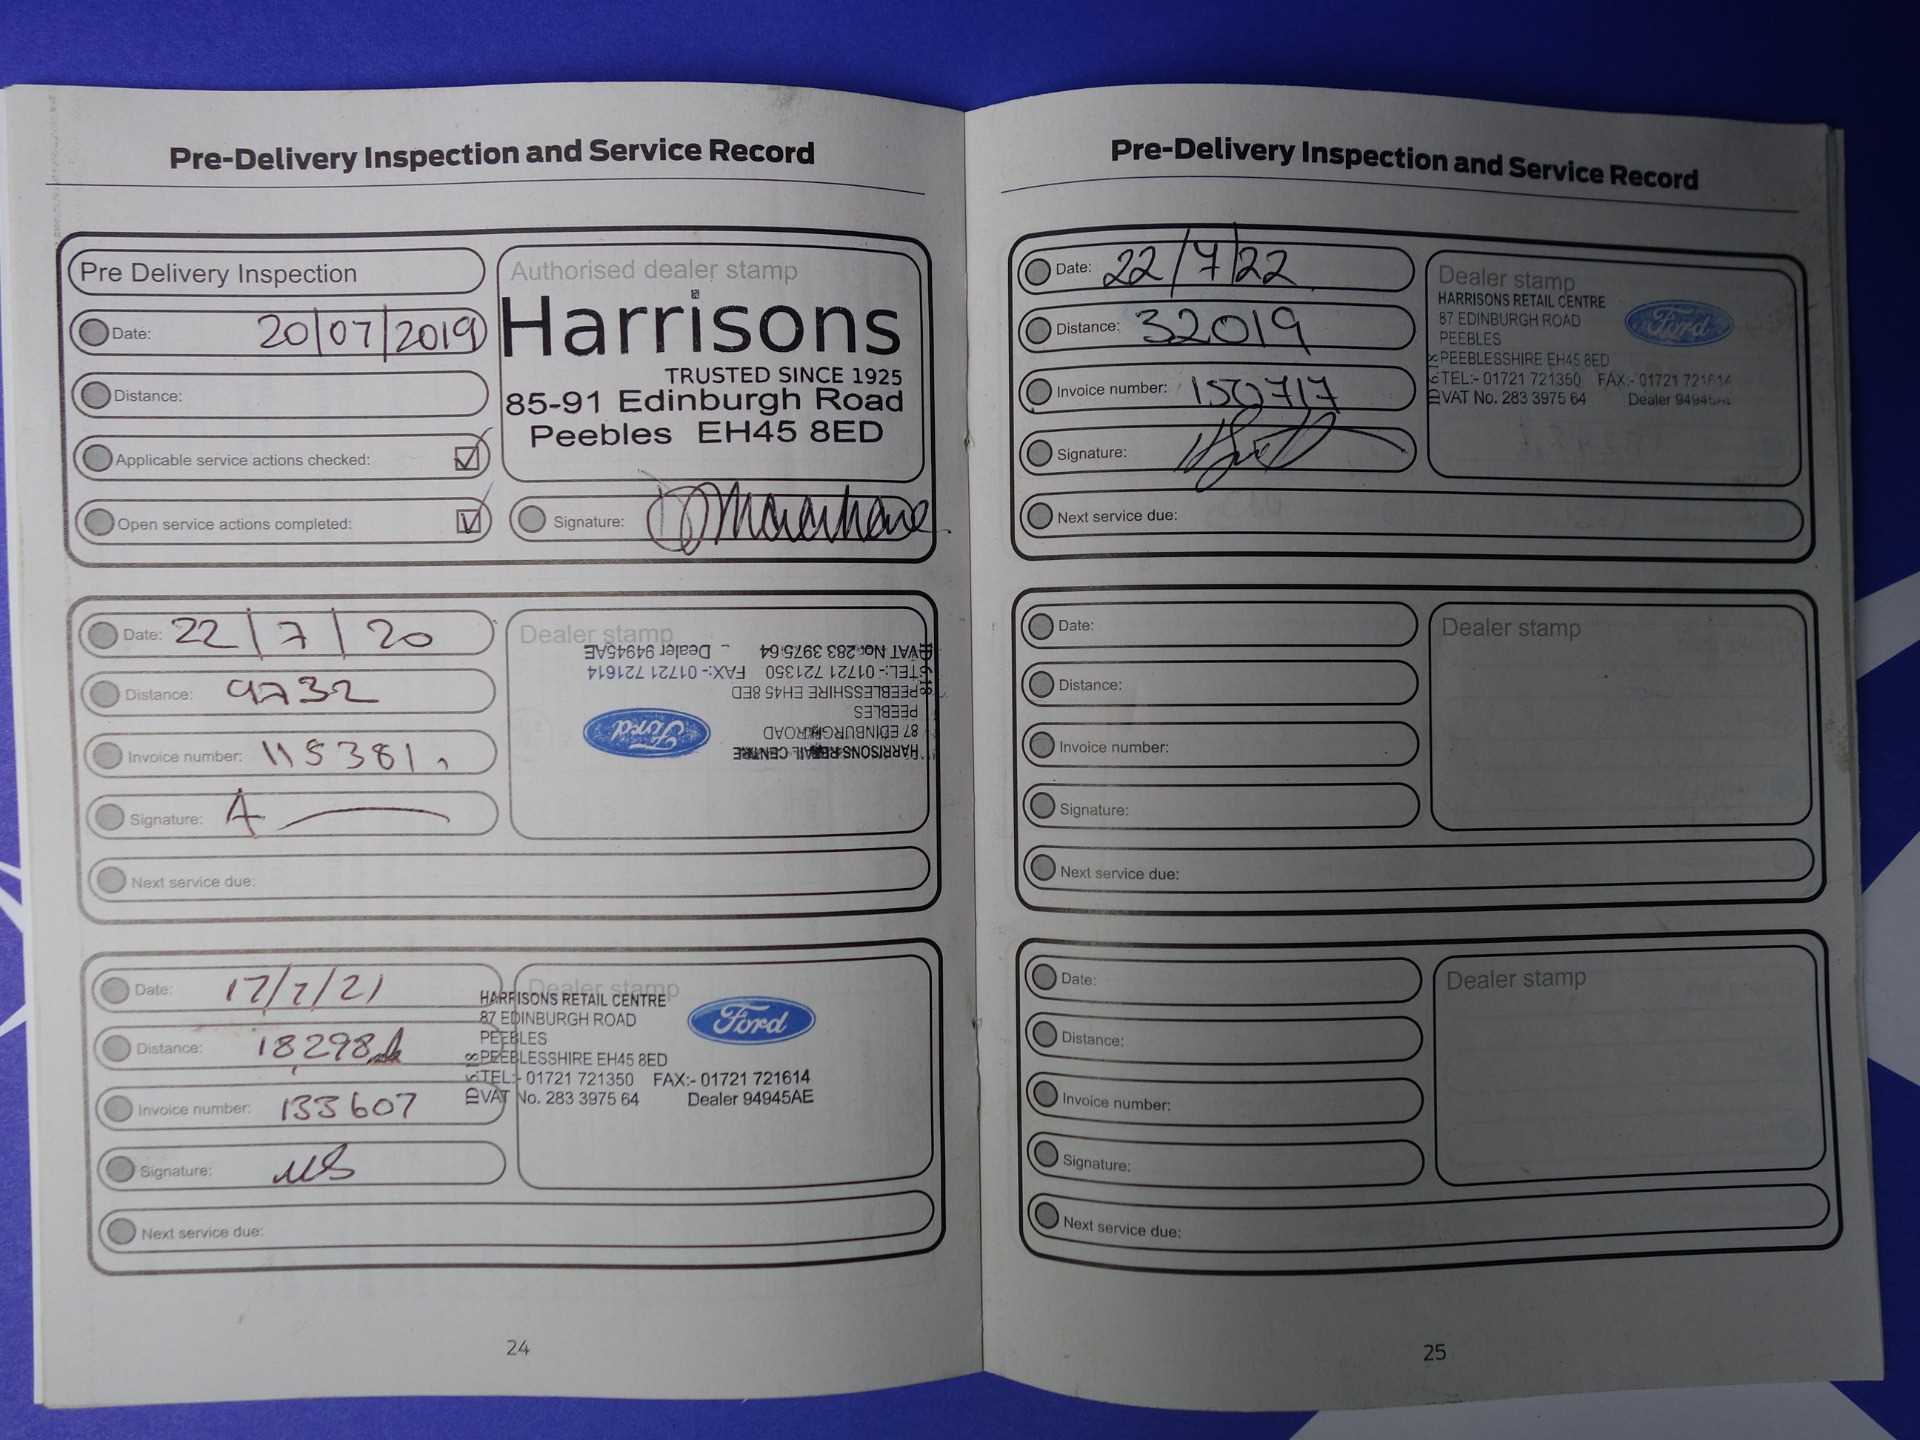 Pre-Delivery Inspection and Service Record
Pre Delivery Inspection
Date: 20/07/2019
Distance:
Applicable service actions checked:
Open service actions completed:
Authorised dealer stamp
Harrisons
TRUSTED SINCE 1925
85-91 Edinburgh Road
Peebles EH45 8ED
Signature:
Date: 22/7/20
Distance: 9732
Invoice number: 115381
Signature:
Next service due:
Dealer stamp
HARRISONS RETAIL CENTRE
87 EDINBURGH ROAD
PEEBLES
PEEBLESSHIRE EH45 8ED
TEL:- 01721 721350 FAX:- 01721 721614
VAT No. 283 3975 64 - Dealer 94945AE
Ford
Date: 17/7/21
Distance: 18298
Invoice number: 133607
Signature:
Next service due:
Dealer stamp
HARRISONS RETAIL CENTRE
87 EDINBURGH ROAD
PEEBLES
PEEBLESSHIRE EH45 8ED
TEL:- 01721 721350 FAX:- 01721 721614
VAT No. 283 3975 64 Dealer 94945AE
Ford
24
Pre-Delivery Inspection and Service Record
Date: 22/7/22
Distance: 32019
Invoice number: 150717
Signature:
Next service due:
Dealer stamp
HARRISONS RETAIL CENTRE
87 EDINBURGH ROAD
PEEBLES
PEEBLESSHIRE EH45 8ED
TEL:- 01721 721350 FAX:- 01721 721614
VAT No. 283 3975 64 Dealer 94945AE
Ford
Date:
Distance:
Invoice number:
Signature:
Next service due:
Dealer stamp
Date:
Distance:
Invoice number:
Signature:
Next service due:
Dealer stamp
25